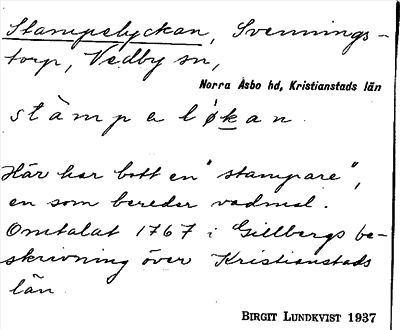 Stampelyckan, Svennings-
torp, Vedby sn,
Norra Åsbo hd, Kristianstads län
stàmpelỏkan.
Här har bott en "stampare",
en som bereder vadmal.
Omtalat 1767 i Gillbergs be-
skrivning över Kristianstads
län
BIRGIT LUNDKVIST 1937